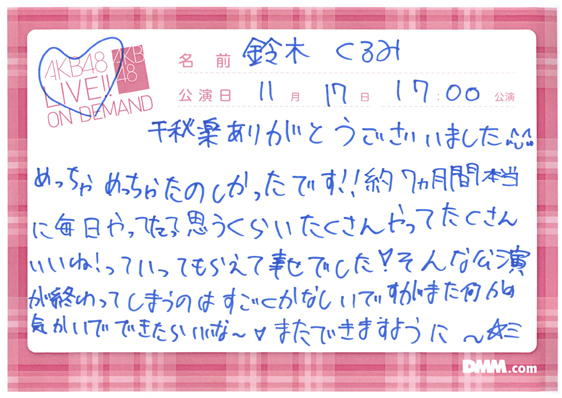 AKB48
LIVE!!
ON DEMAND
AKB
48
名前 鈴木 くるみ
公演日 11月 17日 17:00 公演
千秋楽ありがとうございました
めっちゃめっちゃたのしかったです!!約7ヵ月間本当
に毎日やってたろ思うくらいたくさんやってたくさん
いいね!っていってもらえて幸せでした♡そんな公演
が終わってしまうのはすごくかなしいですがまた何か
気かいでできたらいいな〜♡またできますように〜☆ミ
DMM.com